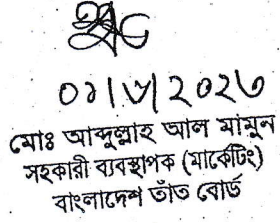 ০১|৮|২০২৩
মোঃ আব্দুল্লাহ আল মামুন
সহকারী ব্যবস্থাপক (মার্কেটিং)
বাংলাদেশ তাঁত বোর্ড